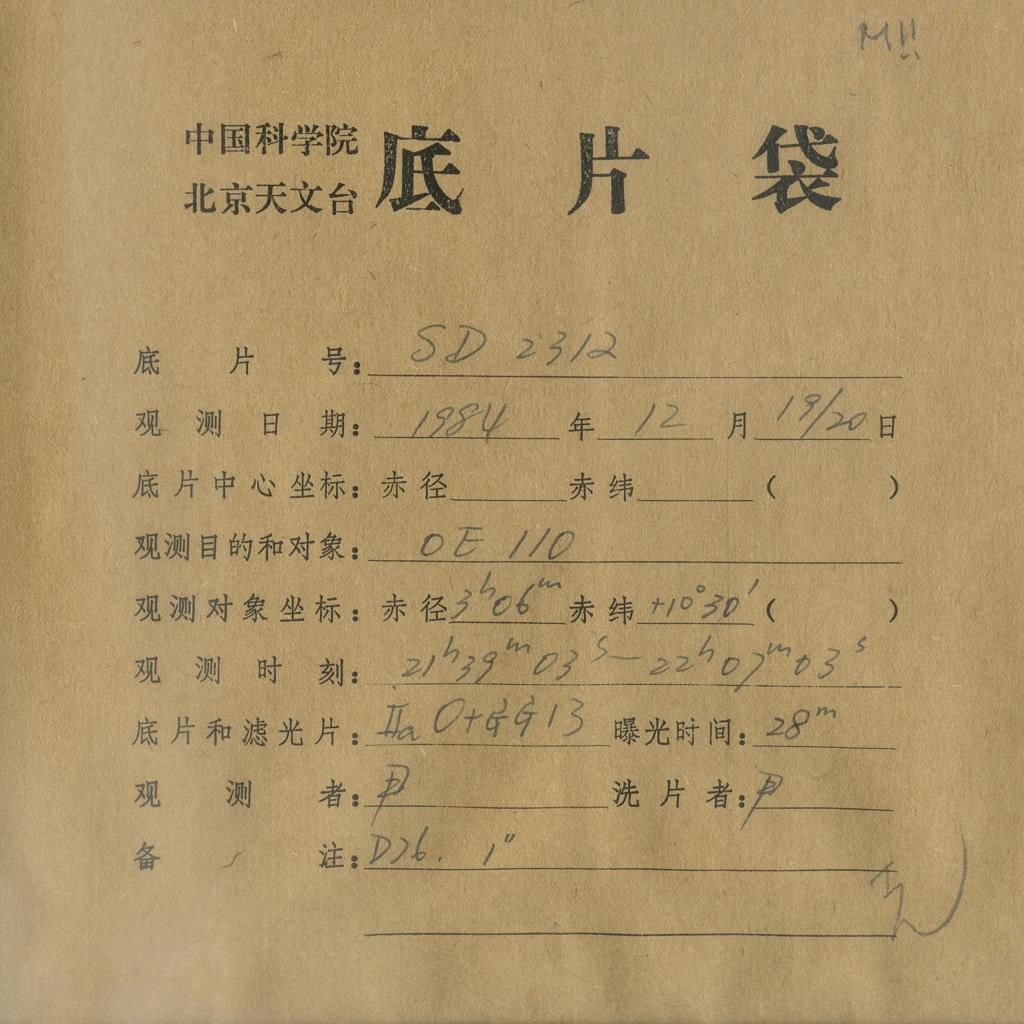 M!!
中国科学院
北京天文台
底片袋
底片号： SD 2312
观测日期： 1984 年 12 月 19/20 日
底片中心坐标：赤径 赤纬 （ ）
观测目的和对象： OE 110
观测对象坐标：赤径 3h06m 赤纬 +10°30′ （ ）
观测时刻： 21h39m03s—22h07m03s
底片和滤光片： IIaO+GG13 曝光时间： 28m
观测者： 洗片者：
备注： D76. 1"